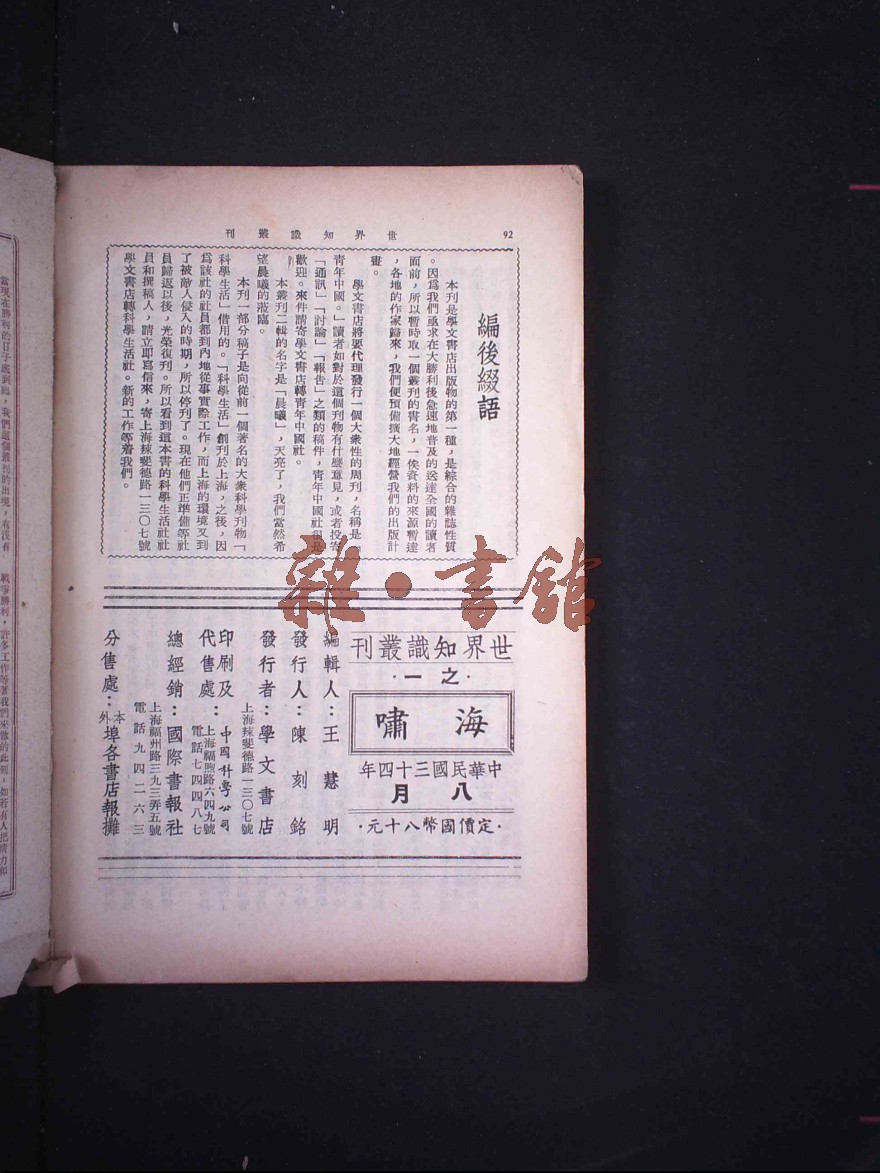 世界知識叢刊
92
編後綴語
本刊是學文書店出版物的第一種,是綜合的雜誌性質
。因為我們亟求在大勝利後急速地普及的送達全國的讀者
面前,所以暫時取一個叢刊的書名,一俟資料的來源暫達
,各地的作家歸來,我們便預備擴大地經營我們的出版計
畫。
學文書店將要代理發行一個大衆性的周刊,名稱是「
青年中國。」讀者如對於這個刊物有什麼意見,或者投寄
「通訊」「討論」「報告」之類的稿件,青年中國社
歡迎。來件請寄學文書店轉青年中國社。
本叢刊二輯的名字是「晨曦」,天亮了,我們當然希
望晨曦的蒞臨。
本刊一部分稿子是向從前一個著名的大衆科學刊物「
科學生活」借用的。「科學生活」創刊於上海,之後,因
為該社的社員都到內地從事實際工作,而上海的環境又到
了被敵人侵入的時期,所以停刊了。現在他們正準備等社
員歸返以後,光榮復刊。所以看到這本書的科學生活社社
員和撰稿人,請立即寫信來,寄上海辣斐德路一三〇七號
學文書店轉科學生活社。新的工作等着我們。
世界知識叢刊
·之一·
海嘯
中華民國三十四年
八月
·定價國幣八十元·
編輯人:王慧明
發行人:陳刻銘
發行者:學文書店
上海辣斐德路一三〇七號
印刷及
代售處:中國科學公司
上海福煦路六四九號
電話七四四八七
總經銷:國際書報社
上海福州路三九三弄五號
電話九四二六三
分售處:本外埠各書店報攤
雜·書館
當現在勝利的日子底到臨,我們這個叢刊的出現,有沒有
戰爭勝利,許多工作等著我們來做的此刻,如若有人把精力和